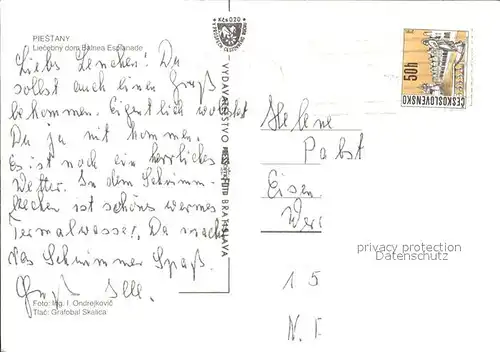 PIEŠŤANY
Liečebný dom Balnea Esplanade
Liebs Lenchen! Du
sollst auch einen Gruß
bekommen. Eigentlich wolltst
Du ja mit kommen.
Es ist noch ein herrliches
Wetter. In dem Schwimm-
becken ist schöns warmes
Termalwasser. Da macht
das Schwimmen Spaß.
Gruß
Foto: Ing. I. Ondrejkovič
Tlač: Grafobal Skalica
Kčs 0,20
VYDAVATEĽSTVO BRATISLAVA
50h
ČESKOSLOVENSKO
Helene
Pabst
Eisen
privacy protection
Datenschutz
15
N.